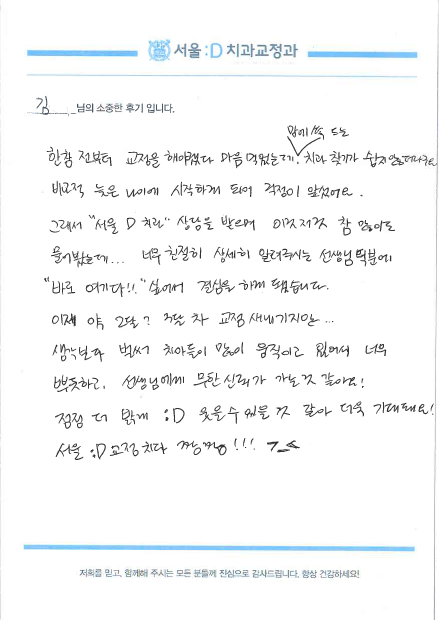 서울 :D 치과교정과
김 님의 소중한 후기 입니다.
맘에 쏙 드는
한참 전부터 교정을 해야겠다 마음 먹었는데, 치과 찾기가 쉽지 않더라구요
비교적 늦은 나이에 시작하게 되어 걱정이 앞섰어요.
그래서 "서울 D 치과" 상담을 받으며 이것저것 참 많이도
물어봤는데... 너무 친절히 상세히 알려주시는 선생님 덕분에
"바로 여기다!!" 싶어서 결심을 하게 됐습니다.
이제 약 2달? 3달 차 교정 새내기지만...
생각보다 벌써 치아들이 많이 움직이고 있어서 너무
뿌듯하고, 선생님에게 무한 신뢰가 가는 것 같아요!
점점 더 밝게 :D 웃을 수 있을 것 같아 더욱 기대돼요!
서울 :D 교정치과 짱짱!!!
저희를 믿고, 함께해 주시는 모든 분들께 진심으로 감사드립니다. 항상 건강하세요!